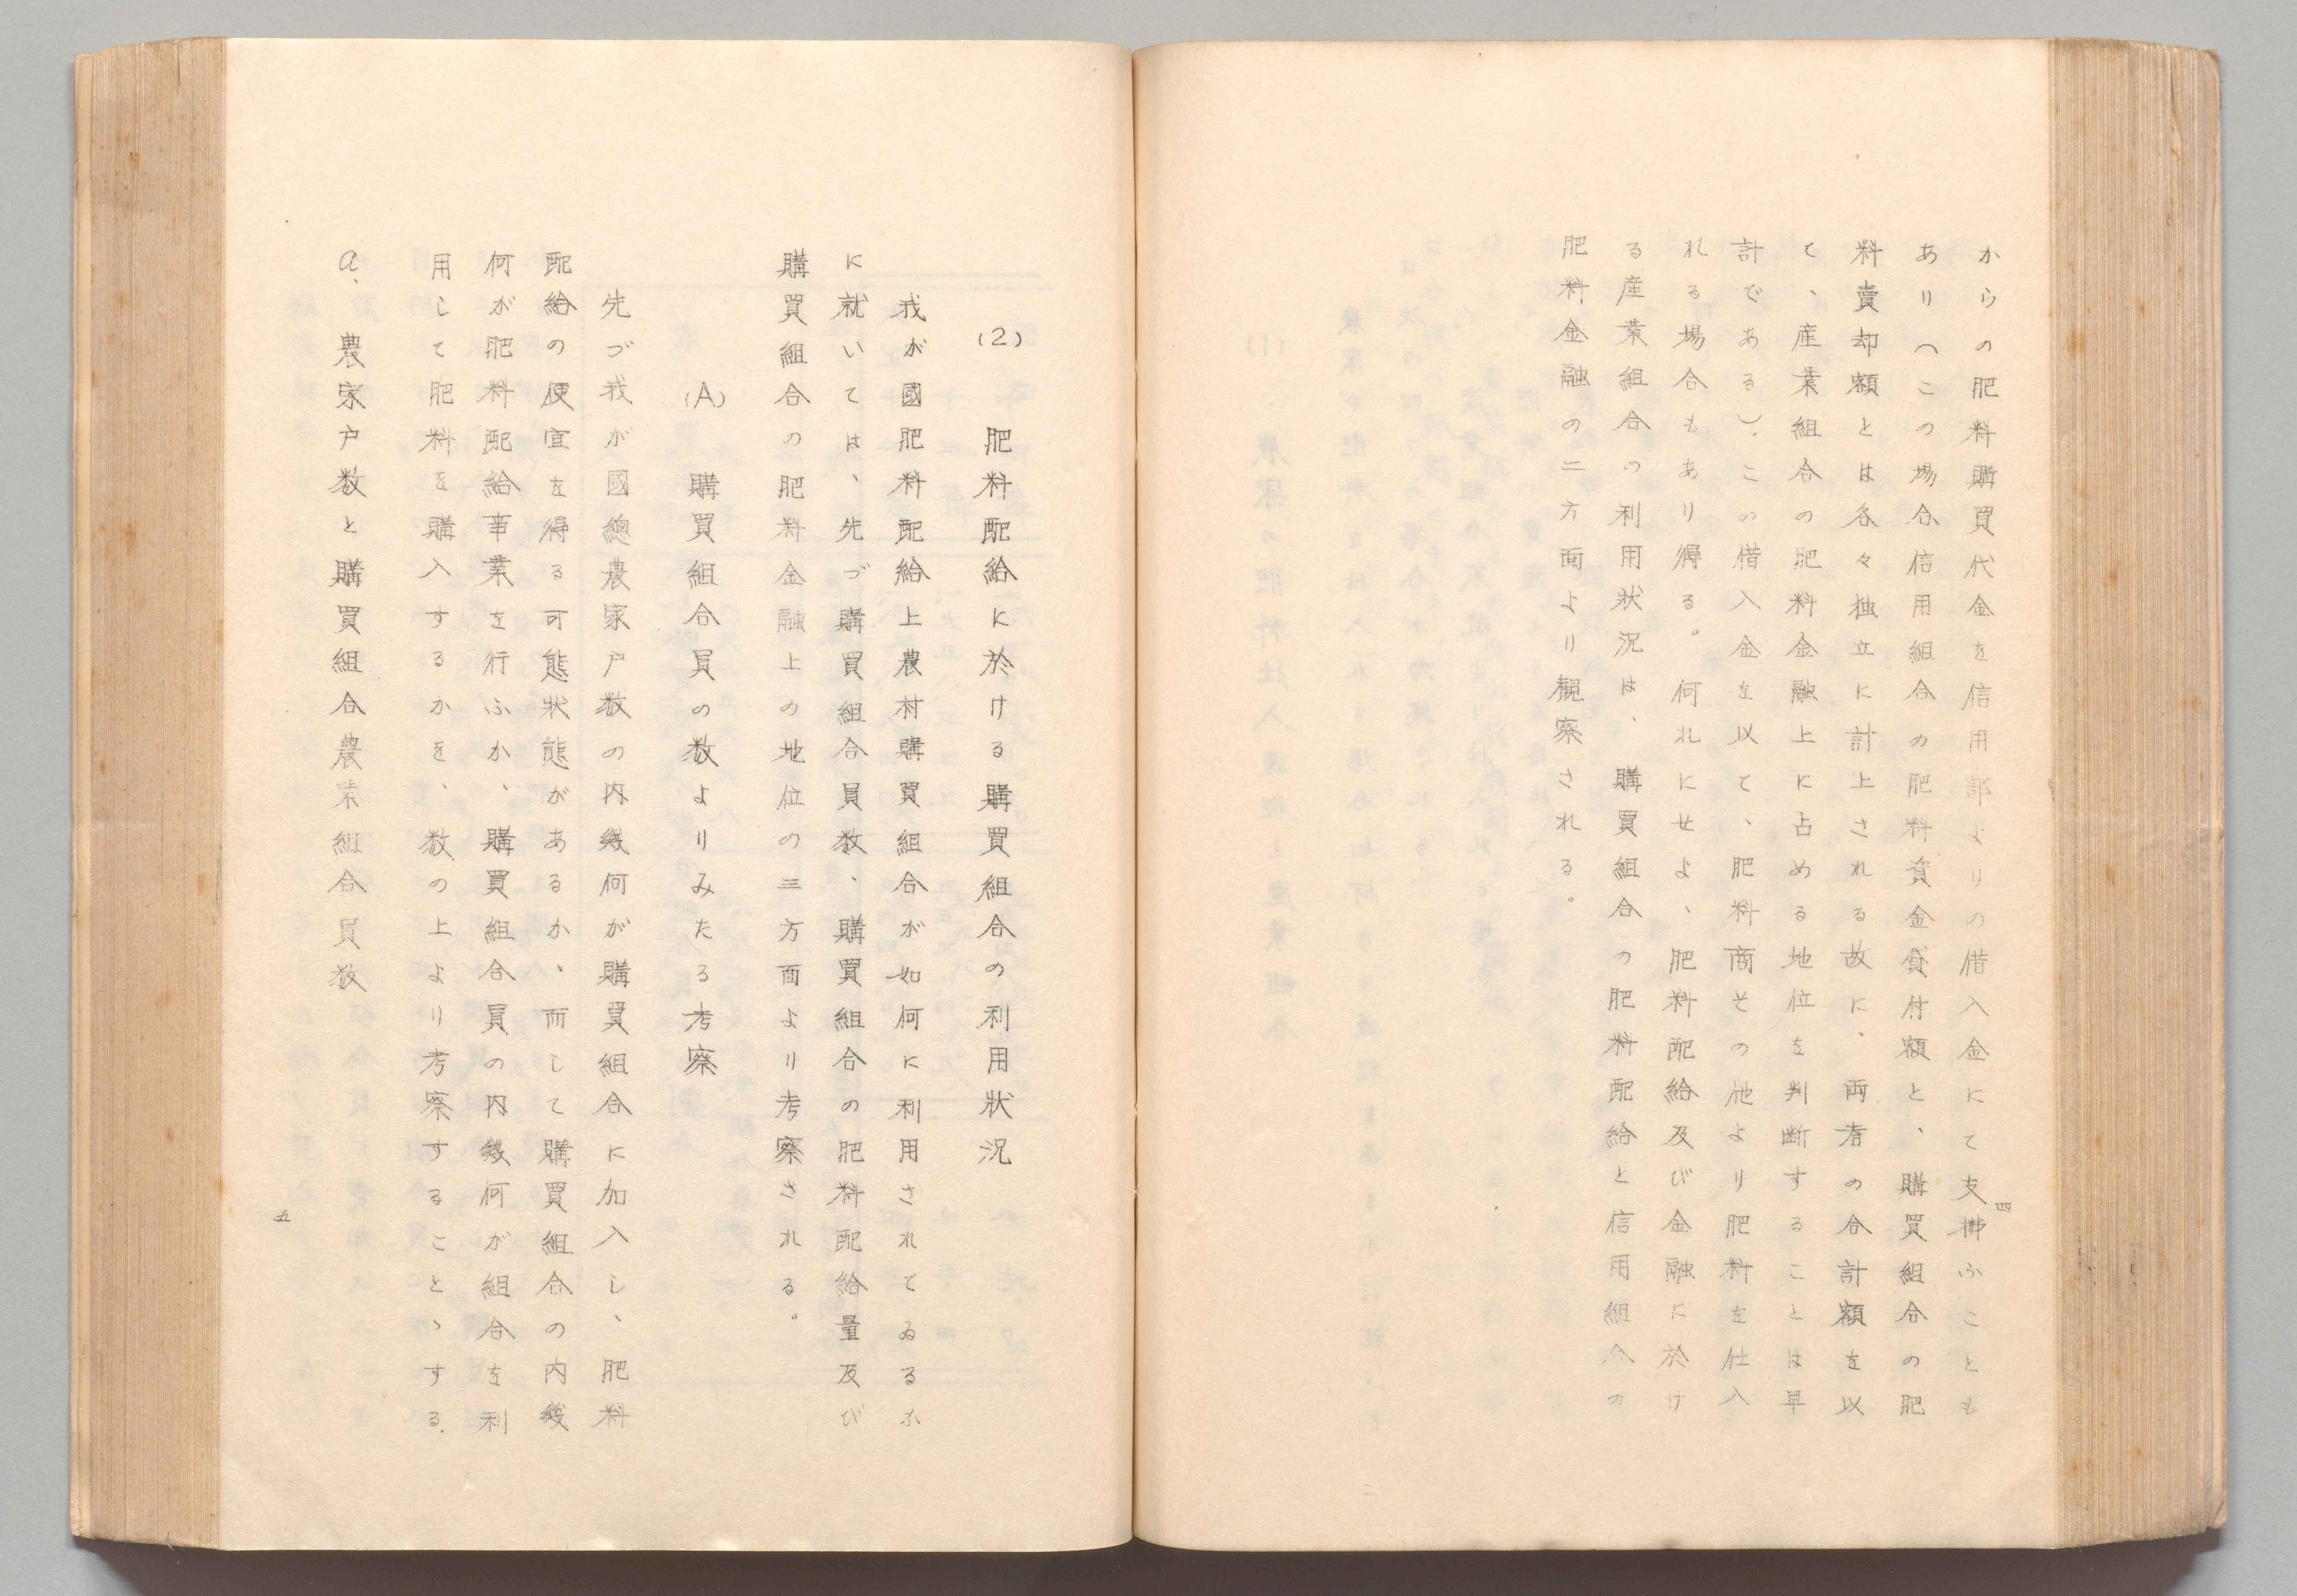 からの肥料購買代金を信用部よりの借入金にて支拂ふことも
あり（この場合信用組合の肥料資金貸付額と、購買組合の肥
料賣却額とは各々独立に計上される故に、両者の合計額を以
て、産業組合の肥料金融上に占める地位を判断することは早
計である）。この借入金を以て、肥料商その他より肥料を仕入
れる場合もあり得る。何れにせよ、肥料配給及び金融に於け
る産業組合の利用状況は、購買組合の肥料配給と信用組合の
肥料金融の二方面より観察される。
四
(2) 肥料配給に於ける購買組合の利用状況
我が國肥料配給上農村購買組合が如何に利用されてゐるか
に就いては、先づ購買組合員数、購買組合の肥料配給量及び
購買組合の肥料金融上の地位の三方面より考察される。
(A) 購買組合員の数よりみたる考察
先づ我が國總農家戸数の内幾何が購買組合に加入し、肥料
配給の便宜を得る可能状態があるか、而して購買組合の内幾
何が肥料配給事業を行ふか、購買組合員の内幾何が組合を利
用して肥料を購入するかを、数の上より考察することゝする.
a、農家戸数と購買組合農業組合員数
五